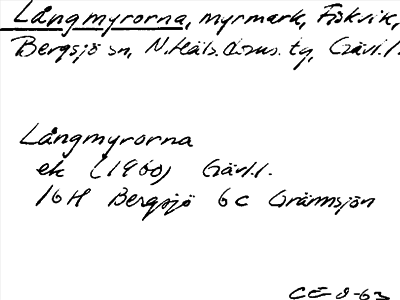 Långmyrorna, myrmark, Fiskvik,
Bergsjö sn, N. Häls. doms. tg, Gävl. l.
Långmyrorna
ek (1960) Gävl. l.
16H Bergsjö 6c Grännsjön
CE-8-63